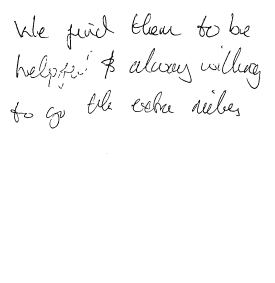 We find them to be
helpful & always willing
to go the extra miles